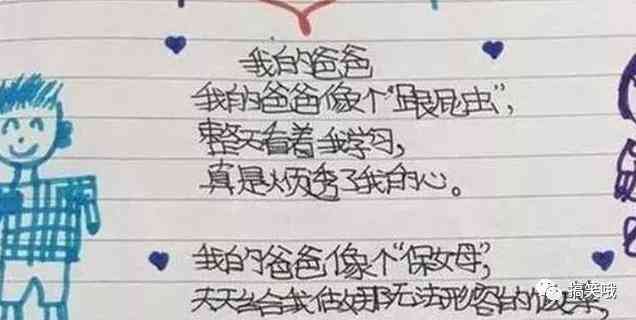 我的爸爸
我的爸爸像个“跟屁虫”,
整天看着我学习,
真是烦透了我的心。
我的爸爸像个“保姆”,
天天给我做那无法形容的饭菜,
搞笑哦